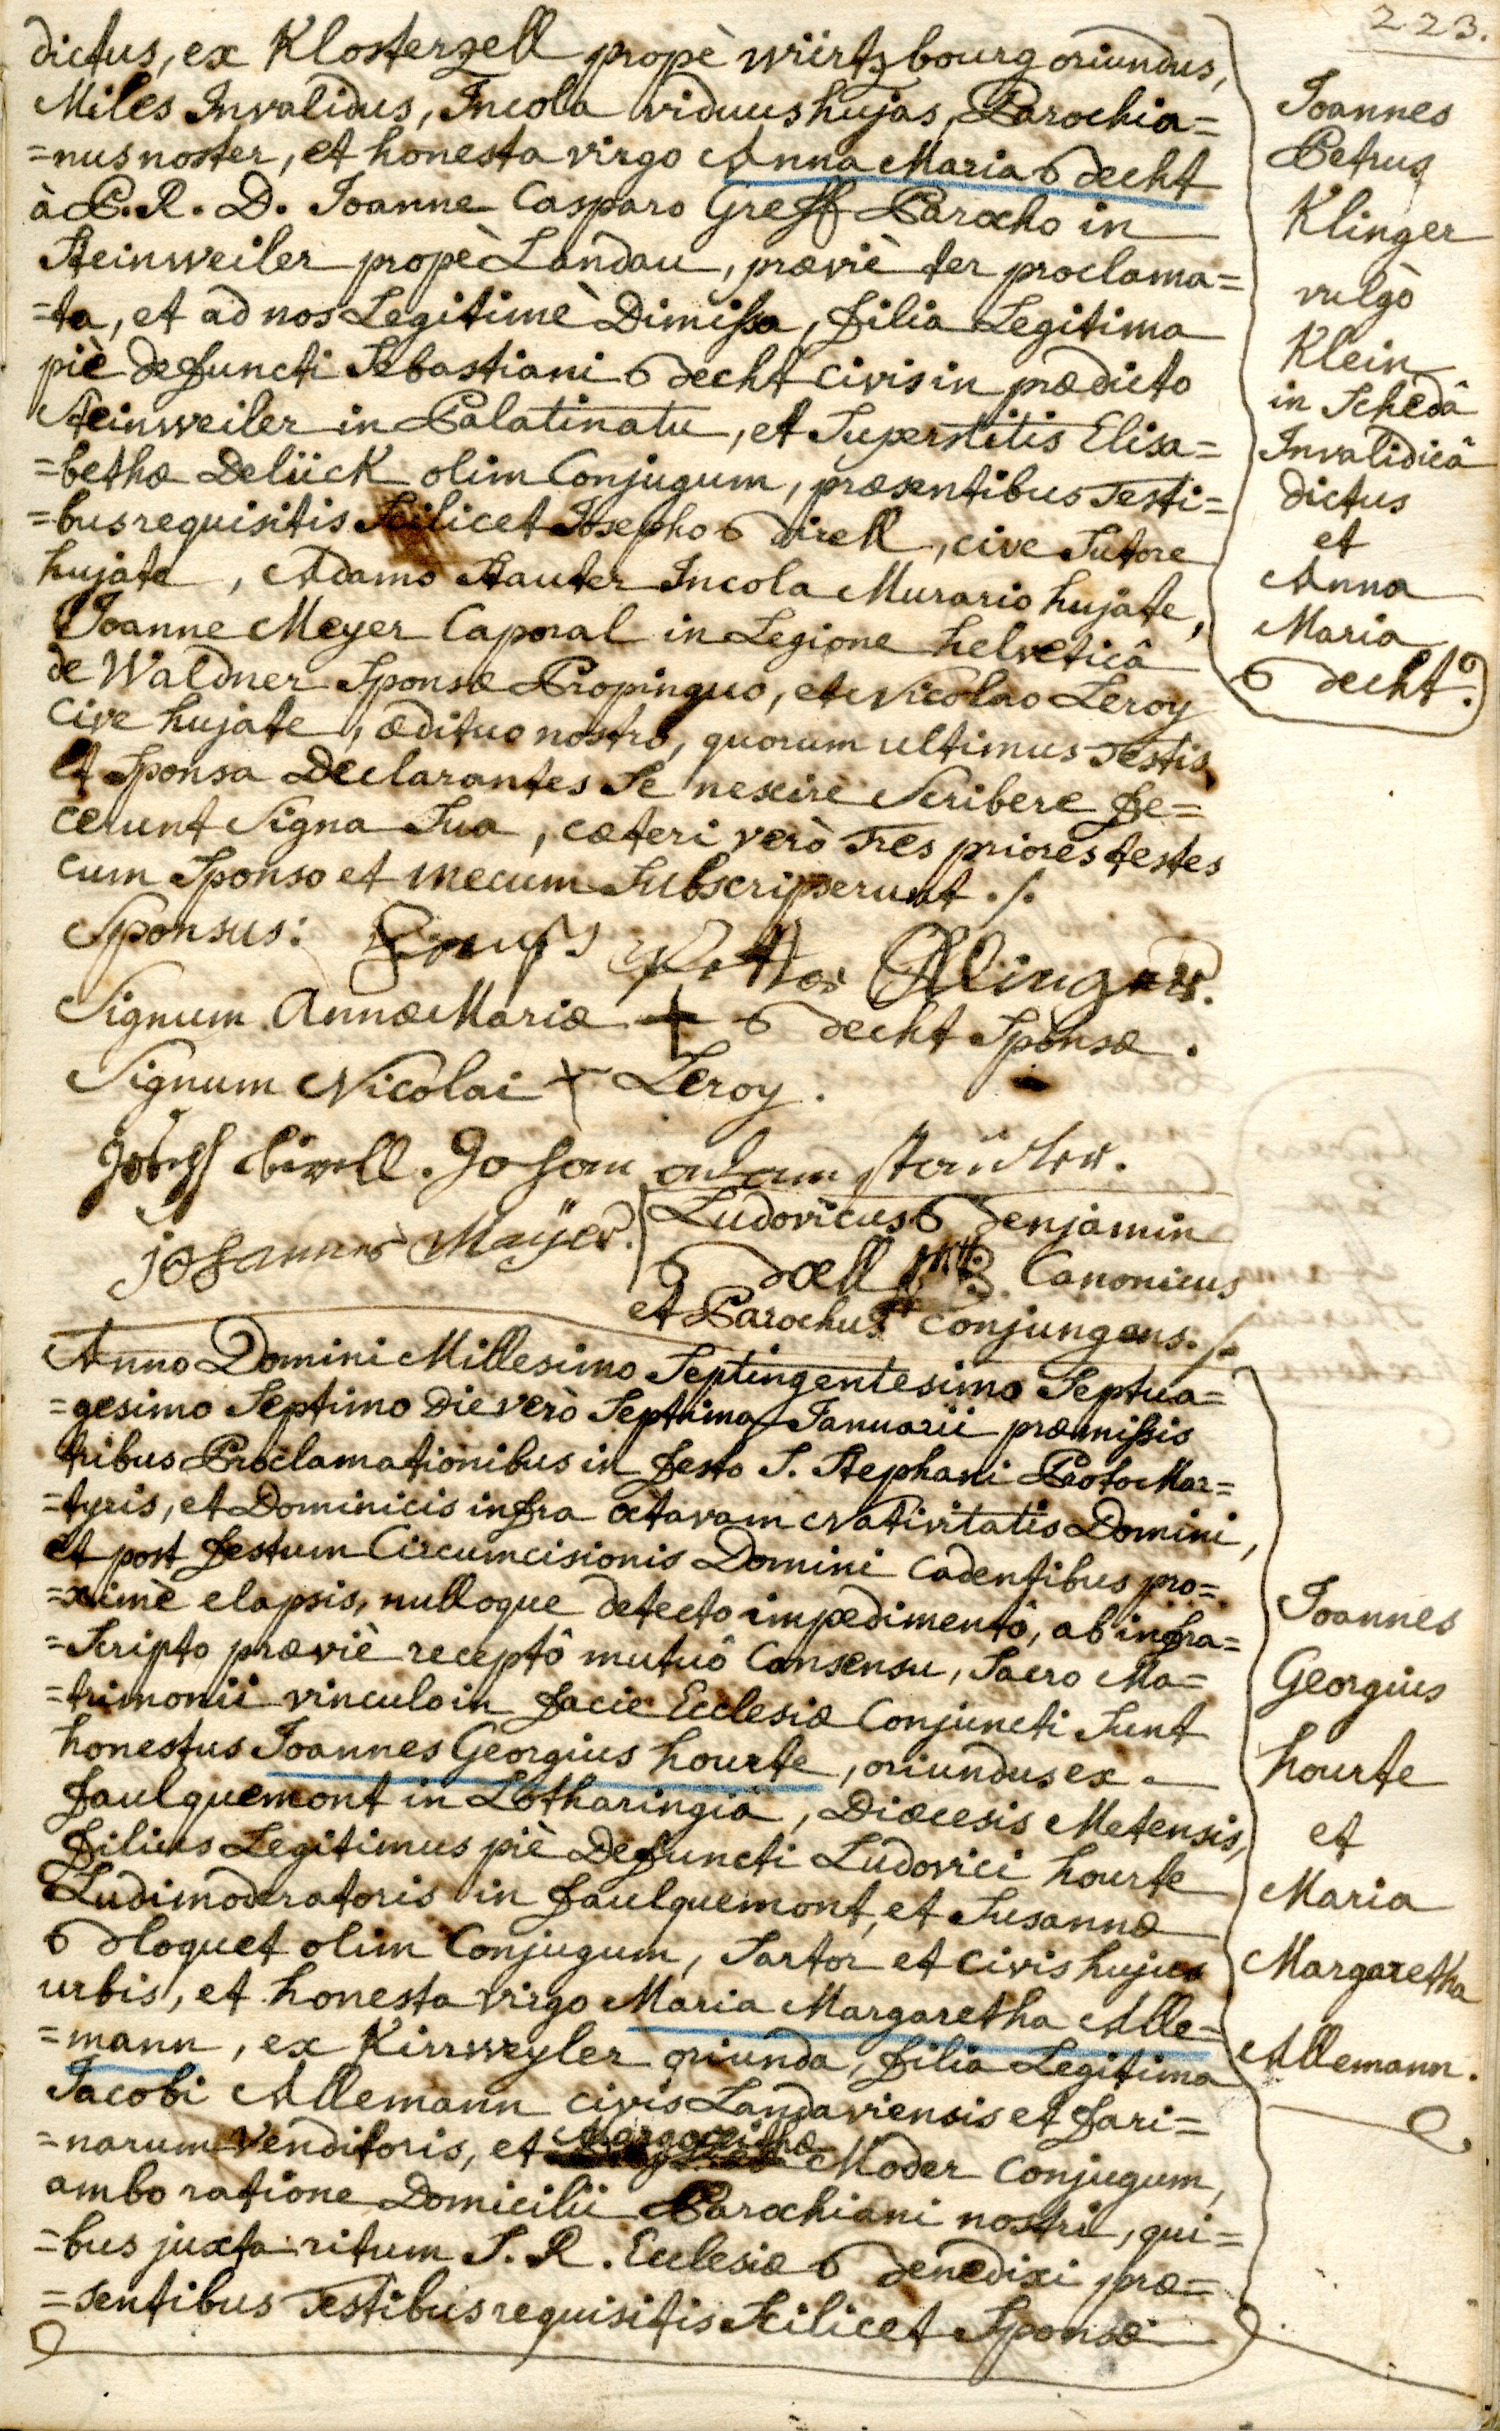 223.
dictus, ex Klosterzell propè würtzbourg oriundus,
Miles Invalidus, Incola viduus hujas, Parochia=
=nus noster, et honesta virgo Anna Maria Becht
à P. R. D. Joanne Casparo Greff Parocho in
Steinweiler propè Landau, præviè ter proclama=
=ta, et ad nos Legitimè Dimissa, filia Legitima
piè defuncti Sebastiani Becht civis in prædicto
Steinweiler in Palatinatu, et Superstitis Elisa=
=bethæ Delück olim Conjugum, præsentibus Testi=
=bus requisitis Scilicet Josepho Birell, cive Sutore
hujate, Adamo Stauter Incola Murario hujate,
Joanne Meyer Caporal in Legione helveticâ
de Waldner Sponsæ Propinquo, et Nicolao Leroy
cive hujate, ædituo nostro, quorum ultimus Testis
et Sponsa Declarantes Se nescire Scribere fe=
cerunt Signa Sua, cæteri verò Tres priores testes
cum Sponso et mecum Subscripserunt ./.
Joannes
Petrus
Klinger
vulgò
Klein
in Schedâ
Invalidicâ
dictus
et
Anna
Maria
Becht.
Sponsus: Klinger.
Signum Annæ Mariæ + Becht Sponsæ.
Signum Nicolai + Leroy.
Joseph birell. Johann adam
Johannes Mayer.
Ludovicus Benjamin
Bæll Canonicus
et Parochus conjungens. ./.
Anno Domini Millesimo Septingentesimo Septua=
=gesimo Septimo Die verò Septima Januarii præmissis
tribus Proclamationibus in festo S. Stephani ProtoMar=
=tyris, et Dominicis infra octavam Nativitatis Domini,
et post festum Circumcisionis Domini cadentibus pro=
=ximè elapsis, nulloque detecto impedimentô, ab infra=
=Scripto præviè receptô mutuô Consensu, Sacro Ma=
=trimonii vinculo in facie Ecclesiæ Conjuncti Sunt
honestus Joannes Georgius hourte, oriundus ex
faulquemont in Lotharingia, Diœcesis Metensis,
filius Legitimus piè Defuncti Ludovici hourte
Ludimoderatoris in faulquemont, et Susannæ
Bloquet olim Conjugum, Sartor et civis hujus
urbis, et honesta virgo Maria Margaretha Alle=
=mann, ex Kirrweyler oriunda, filia Legitima
Jacobi Allemann civis Landaviensis et fari=
=narum Venditoris, et Margarethæ Moder conjugum,
ambo ratione Domicilii Parochiani nostri, qui=
=bus juxta ritum S. R. Ecclesiæ Benedixi præ=
=sentibus Testibus requisitis Scilicet Sponsæ
Joannes
Georgius
hourte
et
Maria
Margaretha
Allemann.